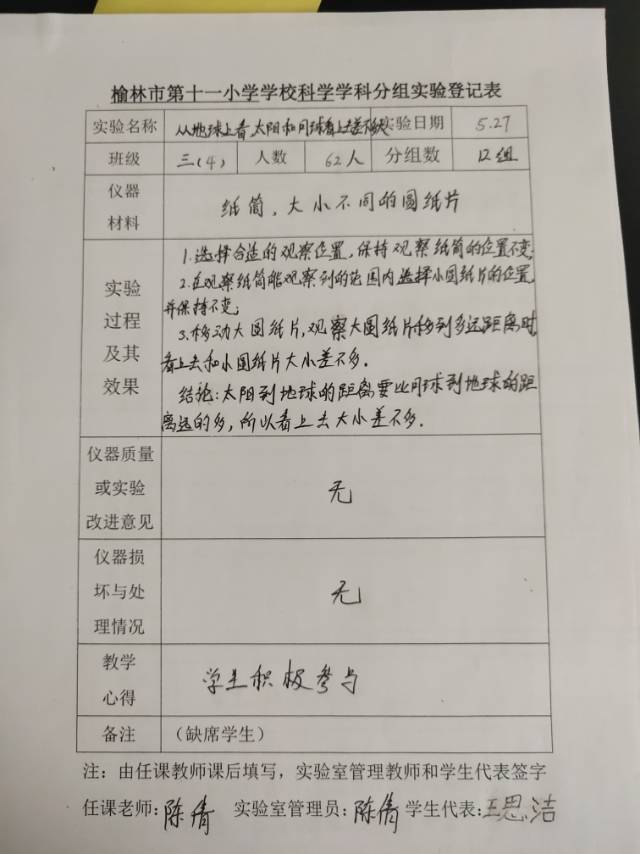 榆林市第十一小学学校科学学科分组实验登记表
实验名称 从地球上看太阳和月球看上去差不多大 实验日期 5.27
班级 三(4) 人数 62人 分组数 12组
仪器材料 纸筒，大小不同的圆纸片
实验过程及其效果
1.选择合适的观察位置，保持观察纸筒的位置不变;
2.在观察纸筒能观察到的范围内选择小圆纸片的位置,
并保持不变;
3.移动大圆纸片,观察大圆纸片移到多远距离时
看上去和小圆纸片大小差不多.
结论:太阳到地球的距离要比月球到地球的距
离远的多,所以看上去大小差不多.
仪器质量或实验改进意见 无
仪器损坏与处理情况 无
教学心得 学生积极参与
备注 （缺席学生）
注：由任课教师课后填写，实验室管理教师和学生代表签字
任课老师:陈倩 实验室管理员:陈倩 学生代表:王思洁